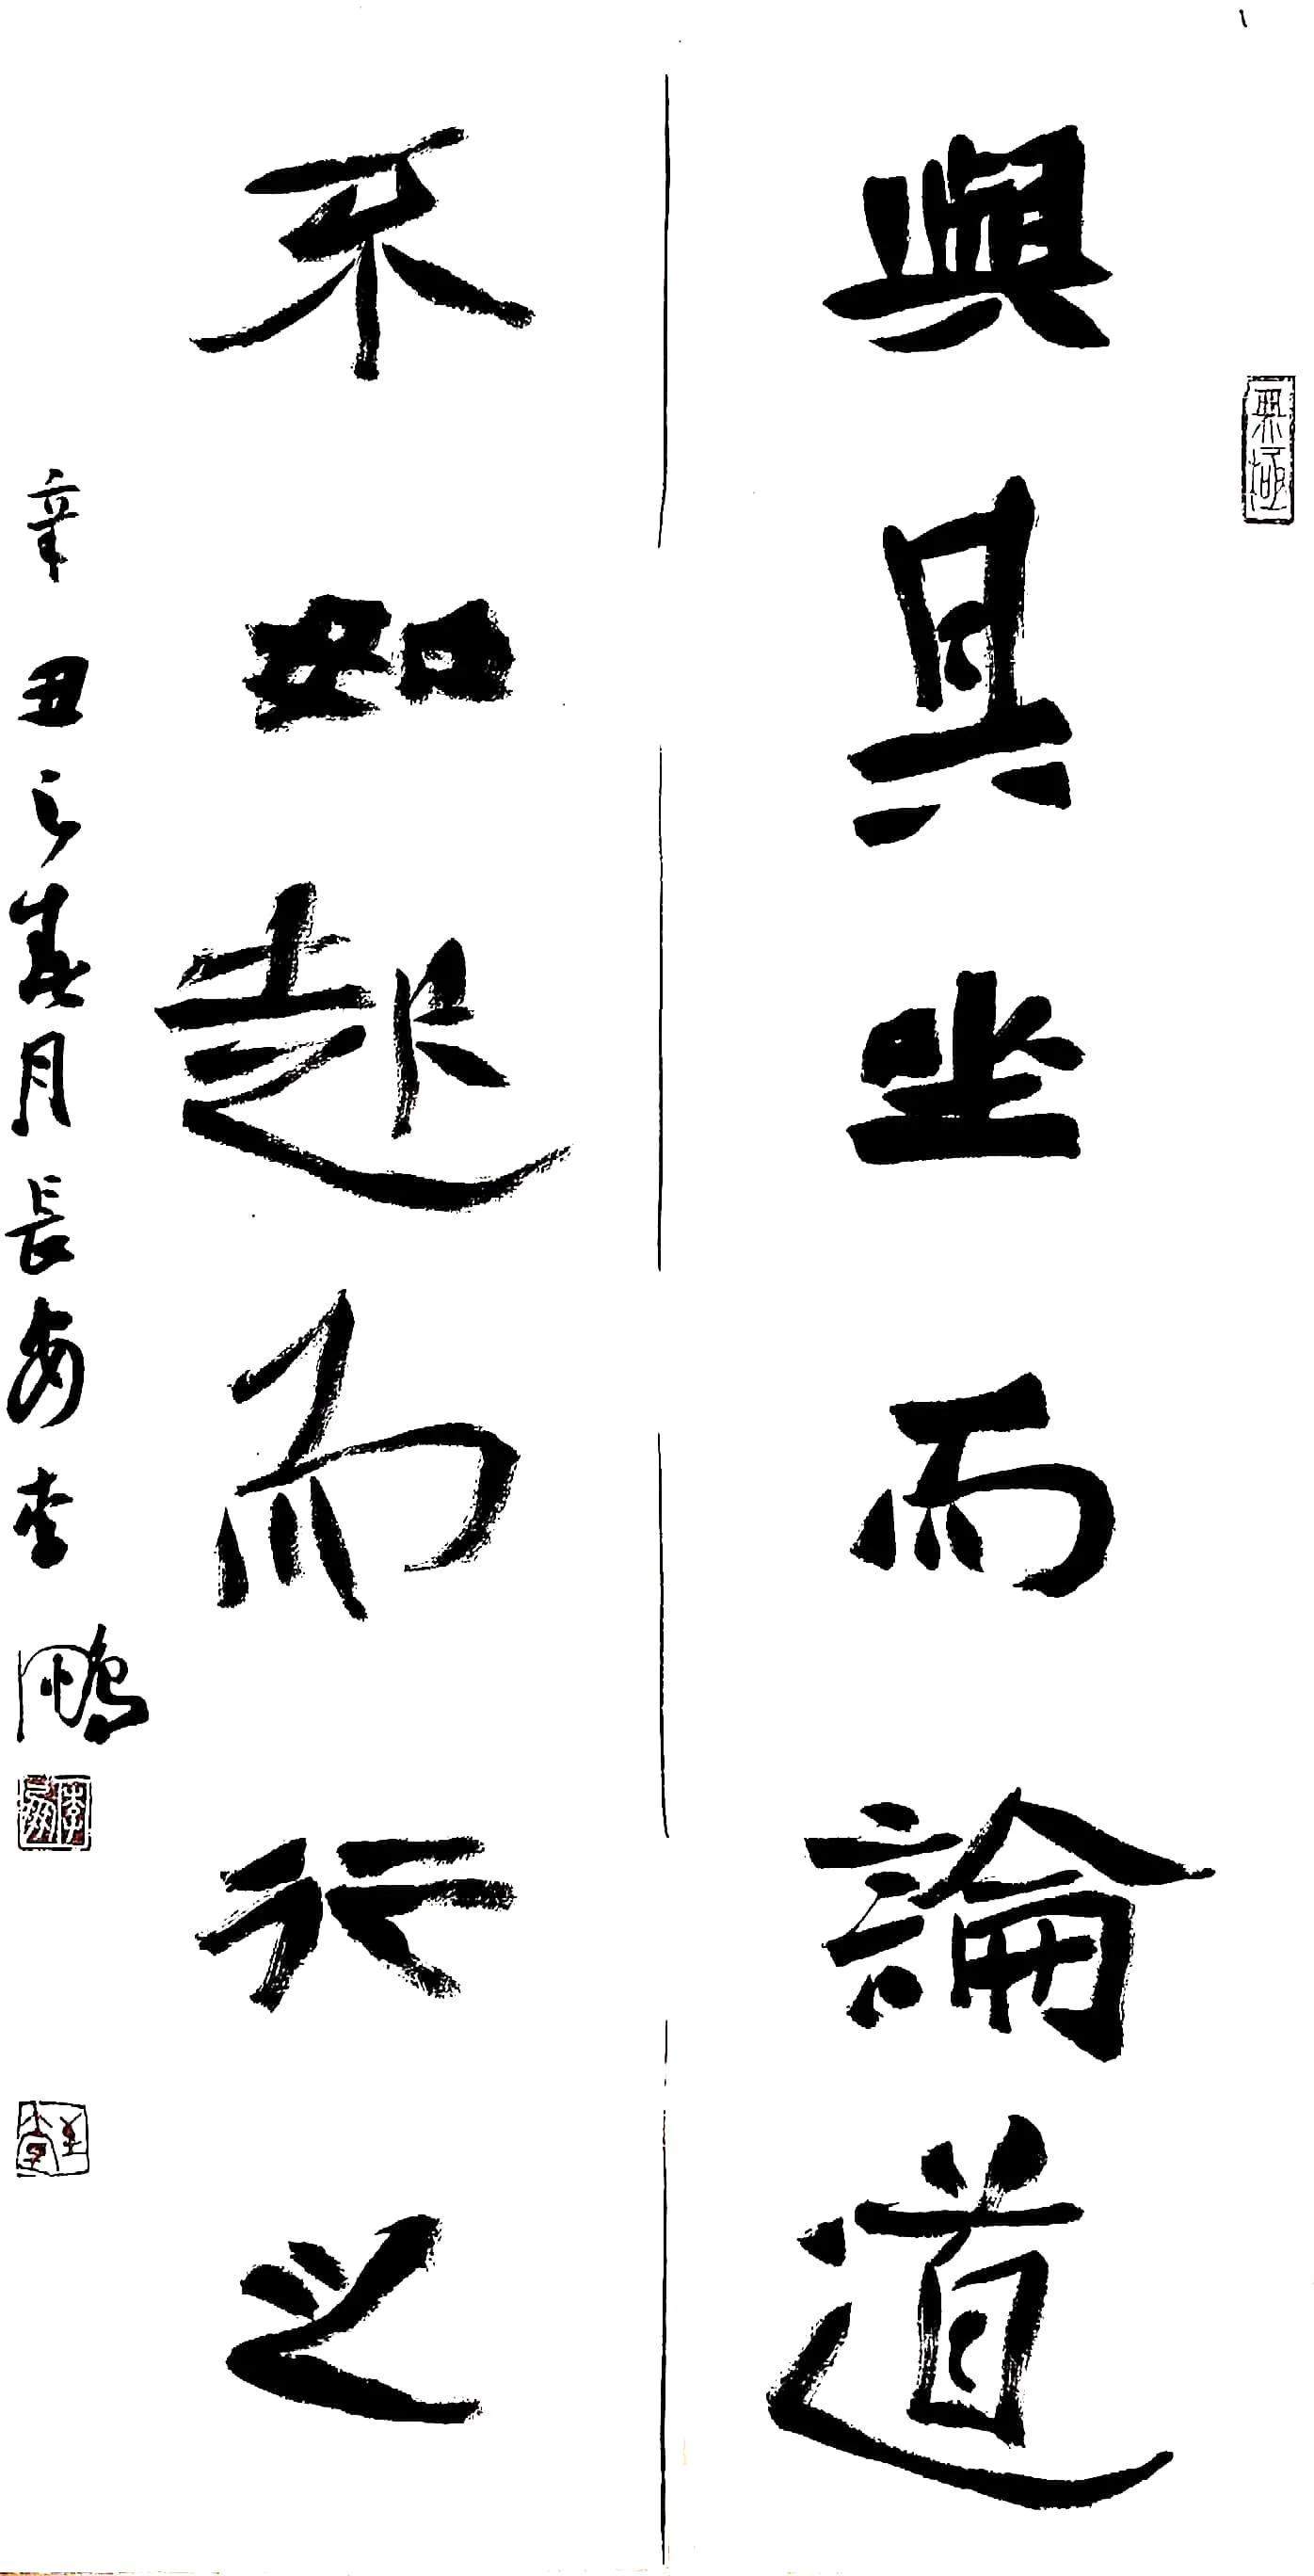 無極
與其坐而論道
不如起而行之
辛丑之春月長安李鵬
李鵬